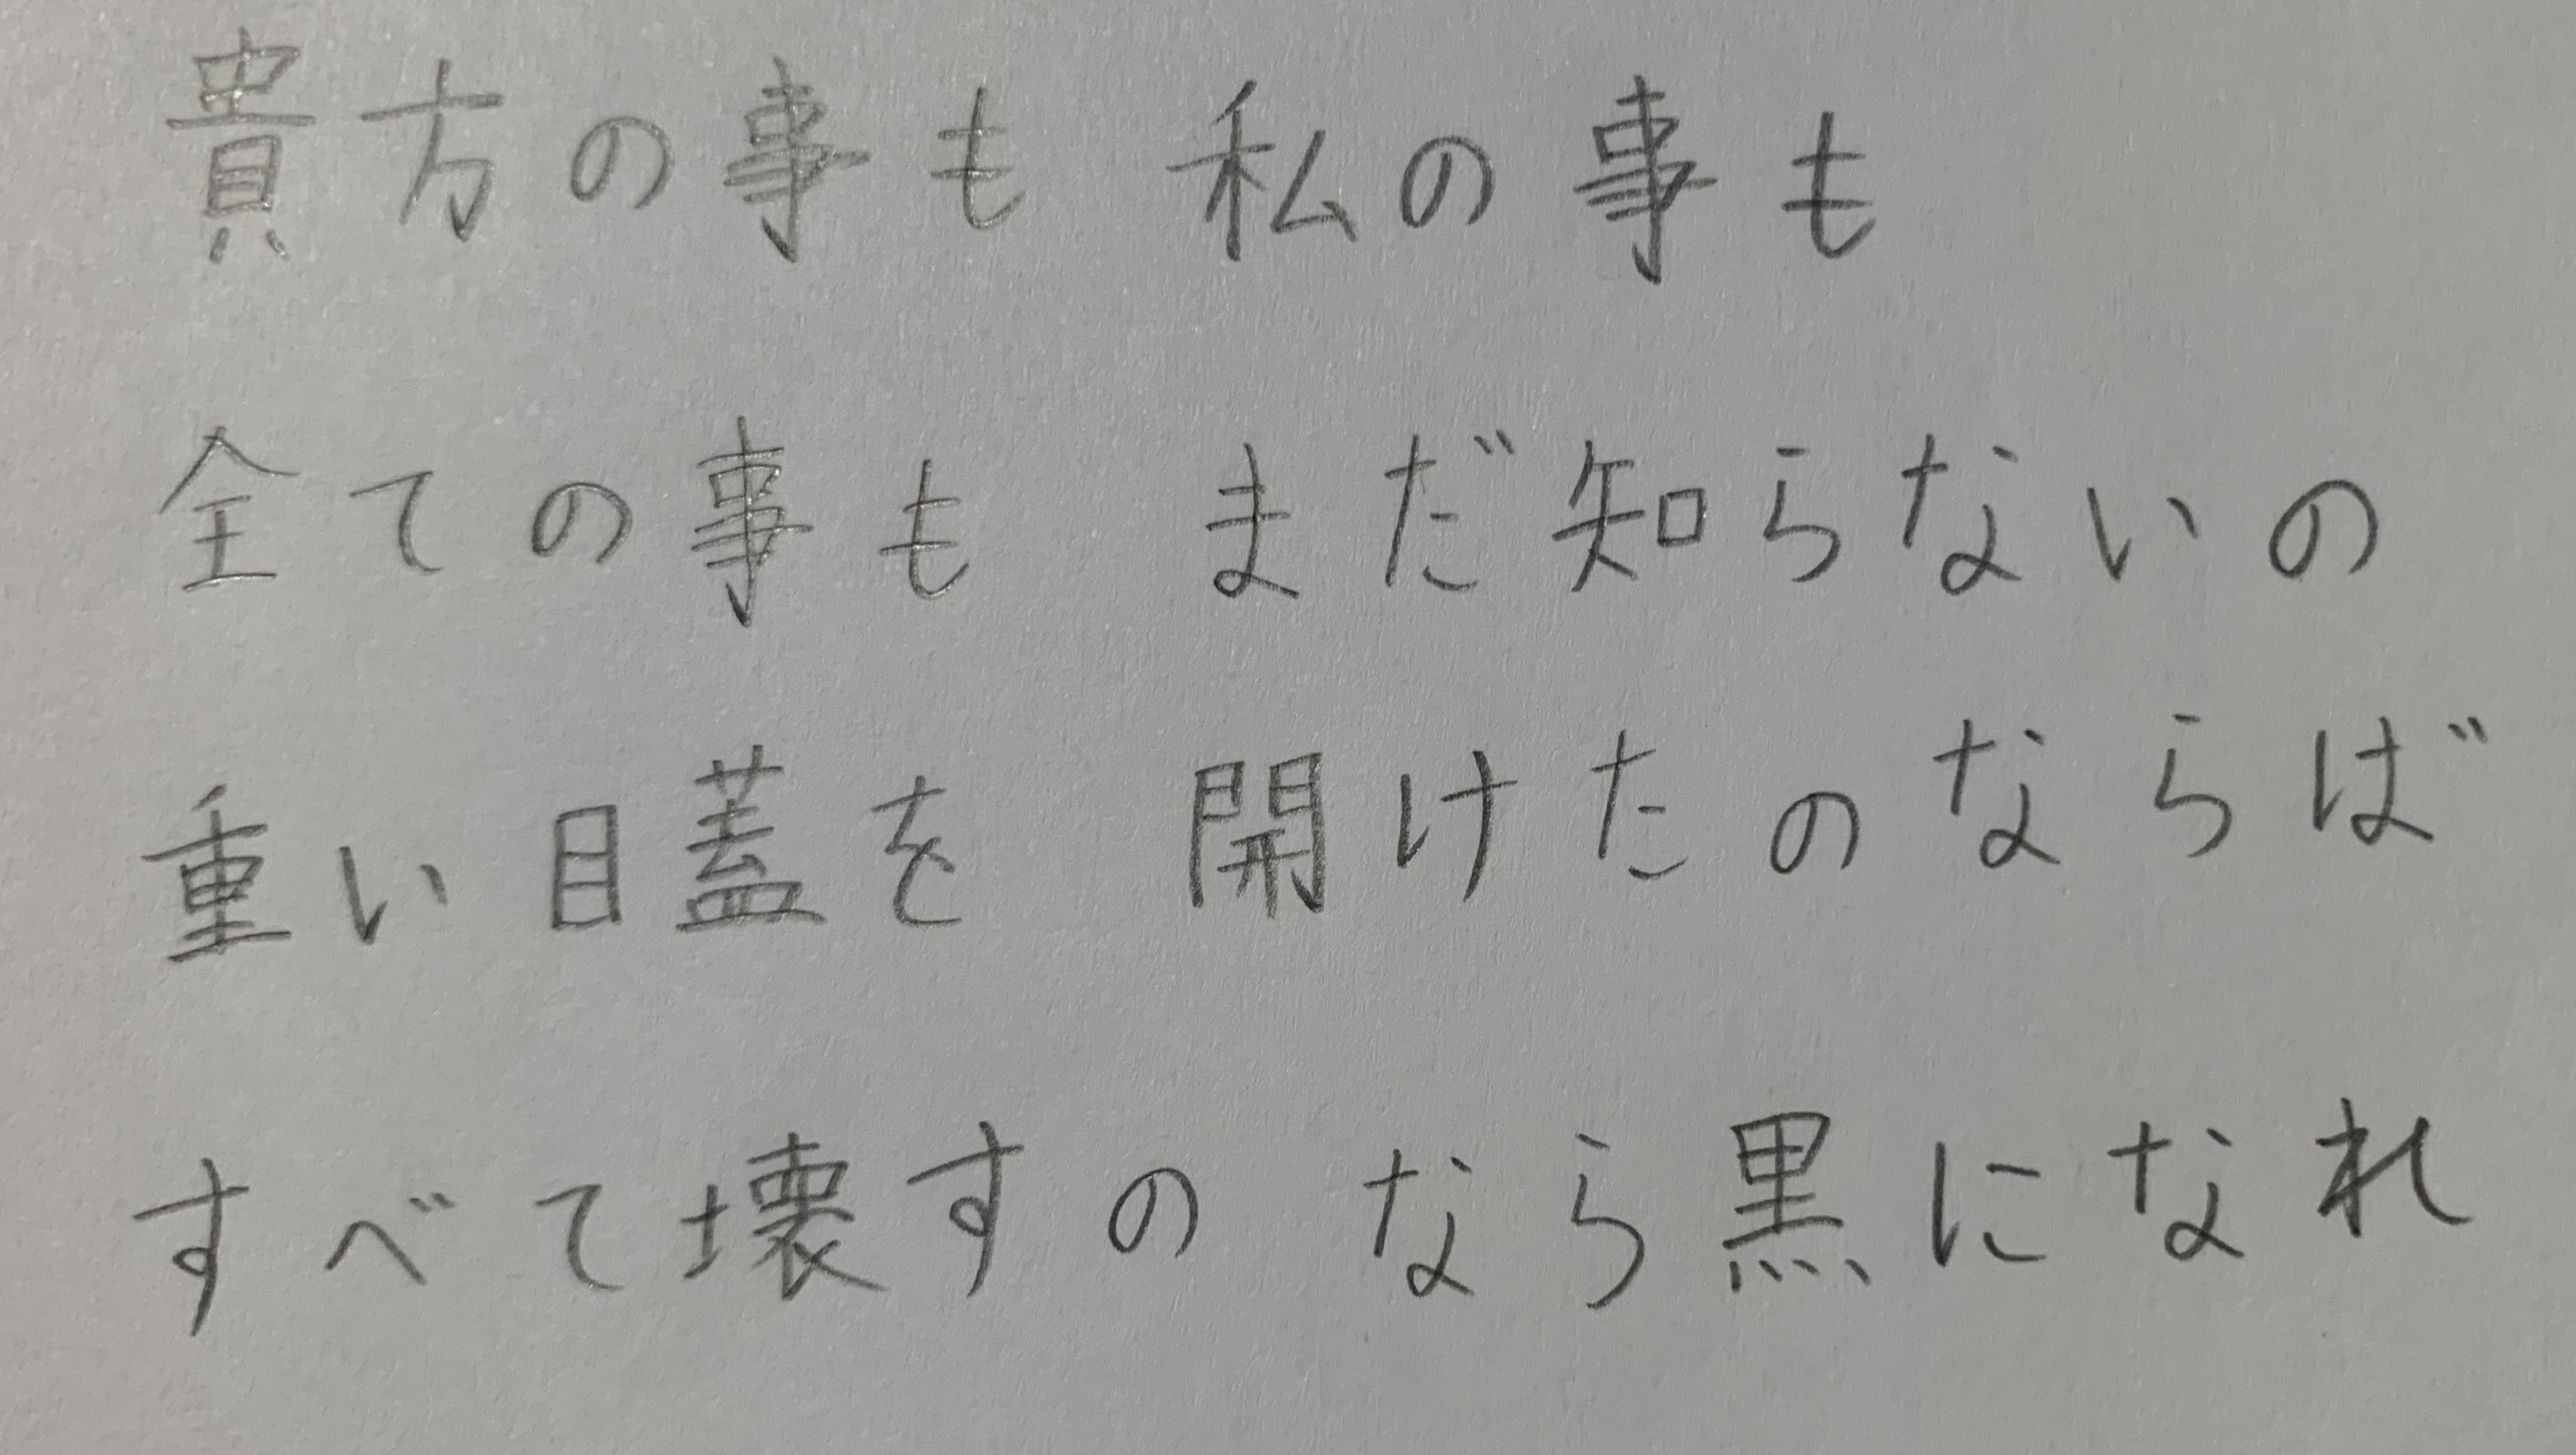 貴方の事も 私の事も
全ての事も まだ知らないの
重い目蓋を 開けたのならば
すべて壊すの なら黒になれ